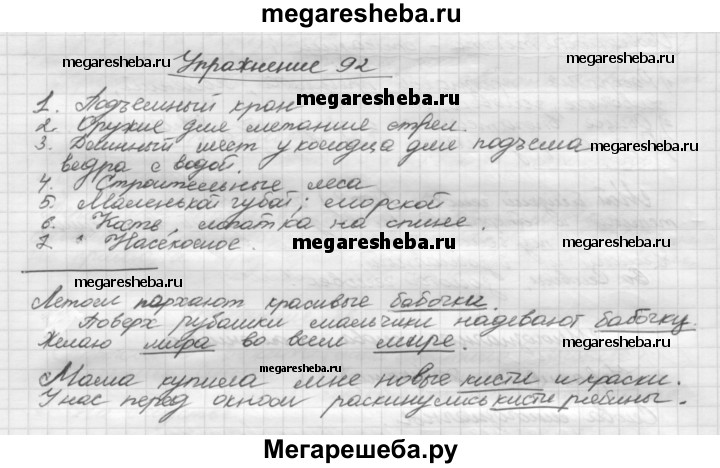 megaresheba.ru
Упражнение 92
megaresheba.ru
megaresheba.ru
1. Подъемный кран
megaresheba.ru
2. Оружие для метания стрел.
3. Длинный шест у колодца для подъема
megaresheba.ru
ведра с водой.
4. Строительные леса
5. Маленькой губой; морской
6. Кость, лопатка на спине.
megaresheba.ru
7. Насекомое.
megaresheba.ru
megaresheba.ru
Летом пархают красивые бабочки.
Поверх рубашки мальчики надевают бабочку.
Желаю мира во всем мире.
megaresheba.ru
megaresheba.ru
Мама купила мне новые кисти и краски.
У нас перед окном раскинулись кисти рябины.
Мегарешеба.ру